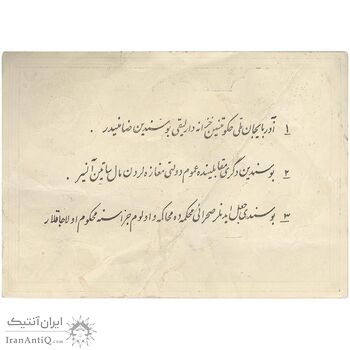 ۱ آذربایجان ملی حکومتینین خزانه دارلیقی بو سندین ضامنیدیر .
۲ بو سندین دگری مقابلینده عموم دولتی مغازه لردن مال ساتین آلنیر .
۳ بو سندی جعل ایدنلر صحرائی محکمه ده محاکمه و اولوم جزاسنه محکوم اولاجاقلار
ایران آنتیک
IranAntiQ.com